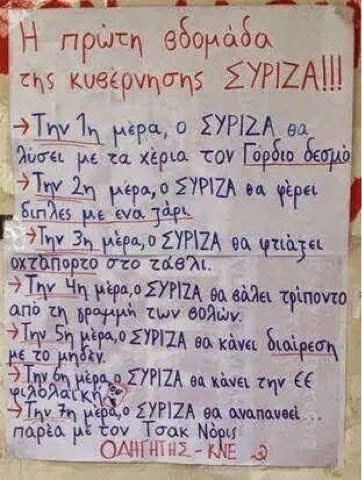 Η πρώτη βδομάδα
της κυβέρνησης ΣΥΡΙΖΑ!!!
→ Την 1η μέρα, ο ΣΥΡΙΖΑ θα
λύσει με τα χέρια τον Γόρδιο δεσμό
→ Την 2η μέρα, ο ΣΥΡΙΖΑ θα φέρει
διπλές με ενα ζάρι
→ Την 3η μέρα, ο ΣΥΡΙΖΑ θα φτιάξει
οχτάπορτο στο τάβλι.
→ Την 4η μέρα, ο ΣΥΡΙΖΑ θα βάλει τρίποντο
από τη γραμμή των βολών.
→ Την 5η μέρα, ο ΣΥΡΙΖΑ θα κάνει διαίρεση
με το μηδέν.
→ Την 6η μέρα, ο ΣΥΡΙΖΑ θα κάνει την ΕΕ
φιλολαϊκή
→ Την 7η μέρα, ο ΣΥΡΙΖΑ θα αναπαυθεί...
παρέα με τον Τσακ Νόρις
ΟΔΗΓΗΤΗΣ - ΚΝΕ